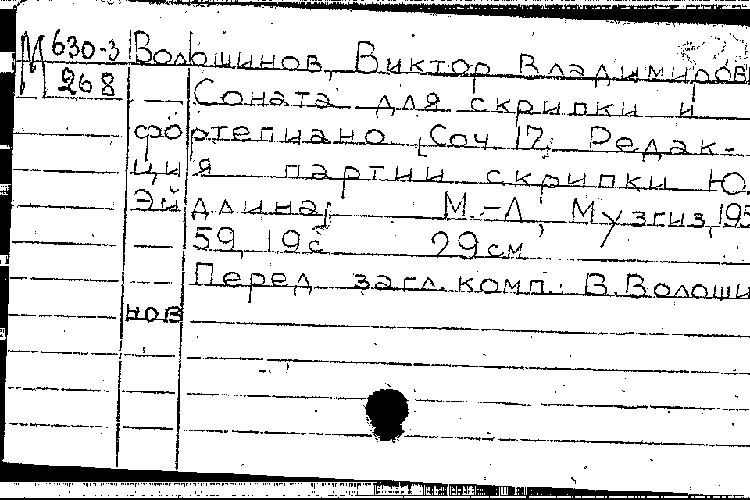 М 630-3
268
Волошинов, Виктор Владимиров
Соната для скрипки и
фортепиано [Соч 17] Редак-
ция партии скрипки Ю.
Эйдлина] М.-Л, Музгиз, 195
59, 19с 29см
Перед загл. комп.: В. Волоши
нов